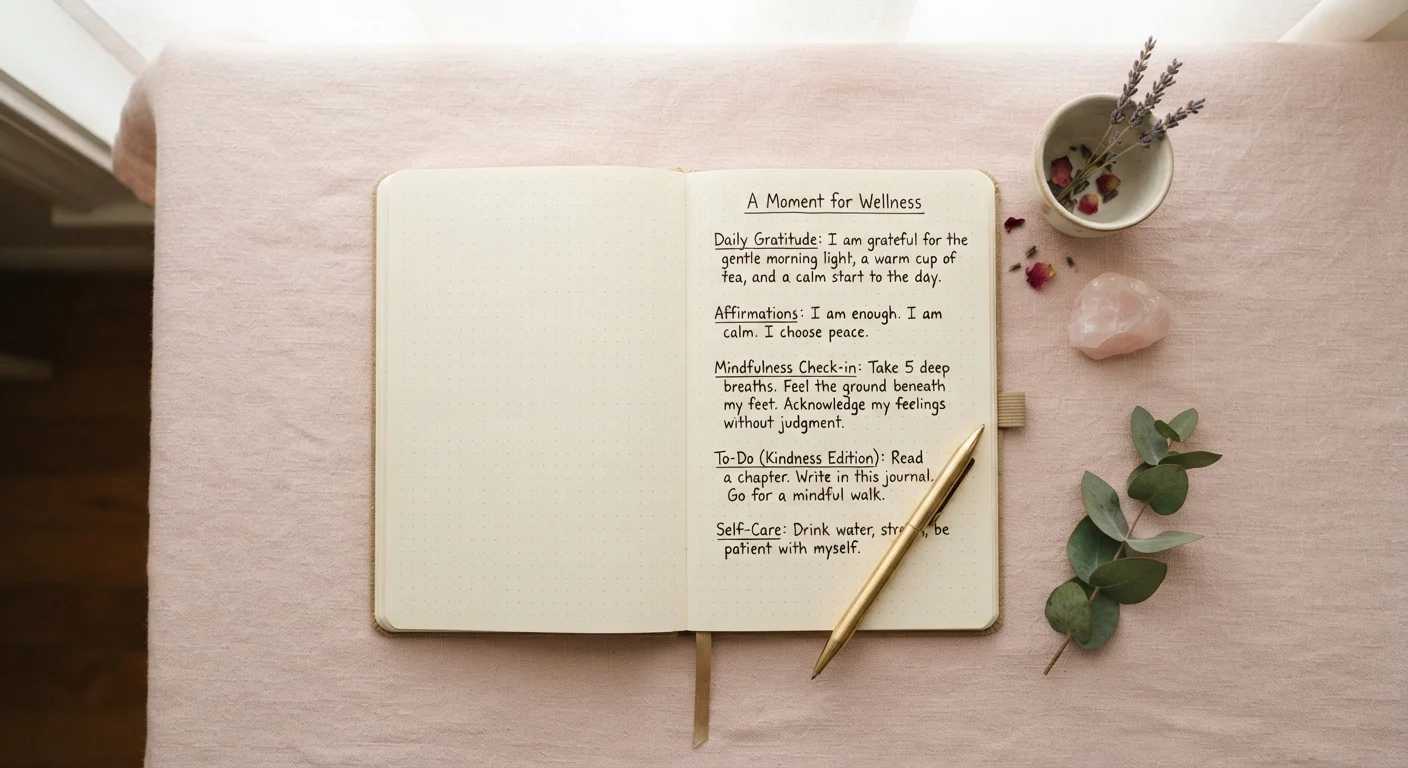 A Moment for Wellness
Daily Gratitude: I am grateful for the
gentle morning light, a warm cup of
tea, and a calm start to the day.
Affirmations: I am enough. I am
calm. I choose peace.
Mindfulness Check-in: Take 5 deep
breaths. Feel the ground beneath
my feet. Acknowledge my feelings
without judgment.
To-Do (Kindness Edition): Read
a chapter. Write in this journal.
Go for a mindful walk.
Self-Care: Drink water, be
patient with myself.